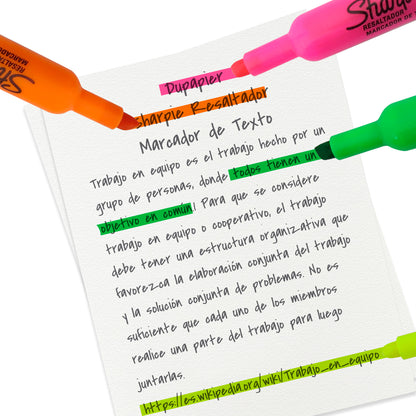 Sharpie
RESALTADOR
MARCADOR
Sharpie
RESALTADOR
MARCADOR DE
Dupapier
Sharpie Resaltador
Marcador de Texto
Trabajo en equipo es el trabajo hecho por un
grupo de personas, donde todos tienen un
objetivo en común. Para que se considere
trabajo en equipo o cooperativo, el trabajo
debe tener una estructura organizativa que
favorezca la elaboración conjunta del trabajo
y la solución conjunta de problemas. No es
suficiente que cada uno de los miembros
realice una parte del trabajo para luego
juntarlas.
https://es.wikipedia.org/wiki/Trabajo_en_equipo